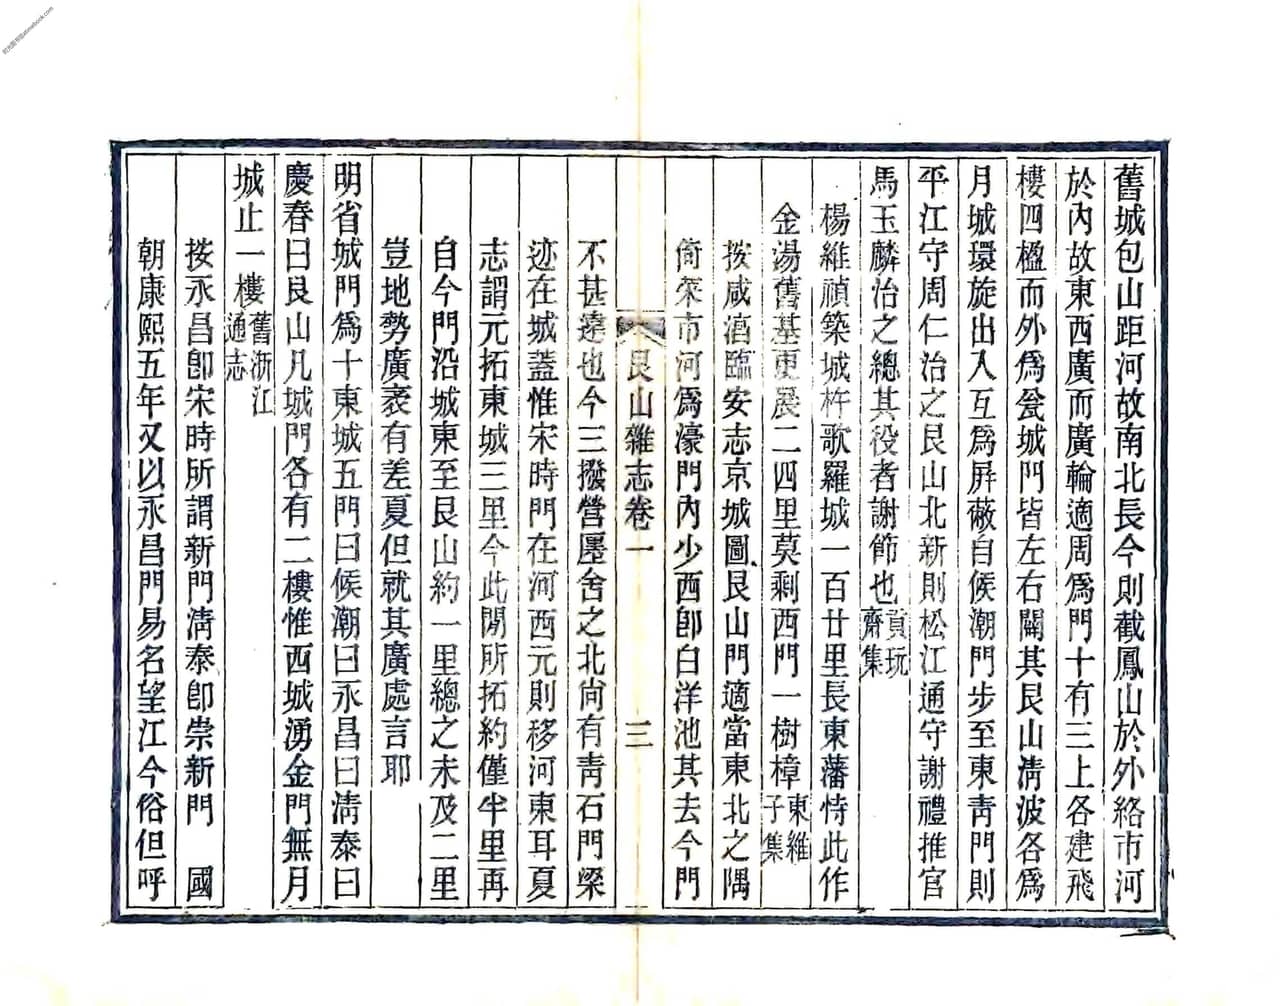 舊城包山距河故南北長今則截鳳山於外絡市河
於內故東西廣而廣輪適周爲門十有三上各建飛
樓四楹而外爲瓮城門皆左右闢其艮山淸波各爲
月城環旋出入互爲屏蔽自候潮門步至東靑門則
平江守周仁治之艮山北新則松江通守謝禮推官
馬玉麟治之總其役者謝節也貢玩齋集
楊維禎築城杵歌羅城一百廿里長東藩恃此作
金湯舊基更展二四里莫剩西門一樹樟東維子集
按咸湻臨安志京城圖艮山門適當東北之隅
倚菜市河爲濠門內少西卽白洋池其去今門
艮山雜志卷一 三
不甚遠也今三撥營廛舍之北尙有靑石門梁
迹在城蓋惟宋時門在河西元則移河東耳夏
志謂元拓東城三里今此閒所拓約僅半里再
自今門沿城東至艮山約一里總之未及二里
豈地勢廣袤有差夏但就其廣處言耶
明省城門爲十東城五門曰候潮曰永昌曰淸泰曰
慶春曰艮山凡城門各有二樓惟西城湧金門無月
城止一樓舊浙江通志
按永昌卽宋時所謂新門淸泰卽崇新門 國
朝康熙五年又以永昌門易名望江今俗但呼